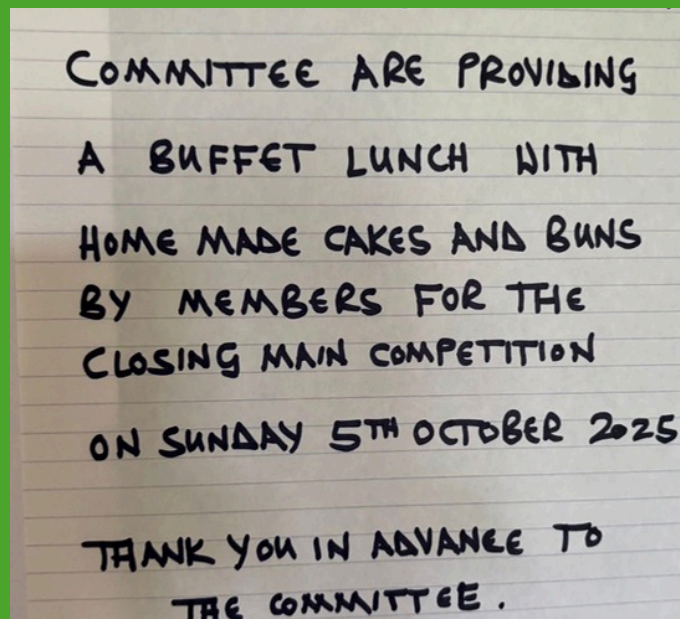 COMMITTEE ARE PROVIDING
A BUFFET LUNCH WITH
HOME MADE CAKES AND BUNS
BY MEMBERS FOR THE
CLOSING MAIN COMPETITION
ON SUNDAY 5TH OCTOBER 2025
THANK YOU IN ADVANCE TO
THE COMMITTEE.